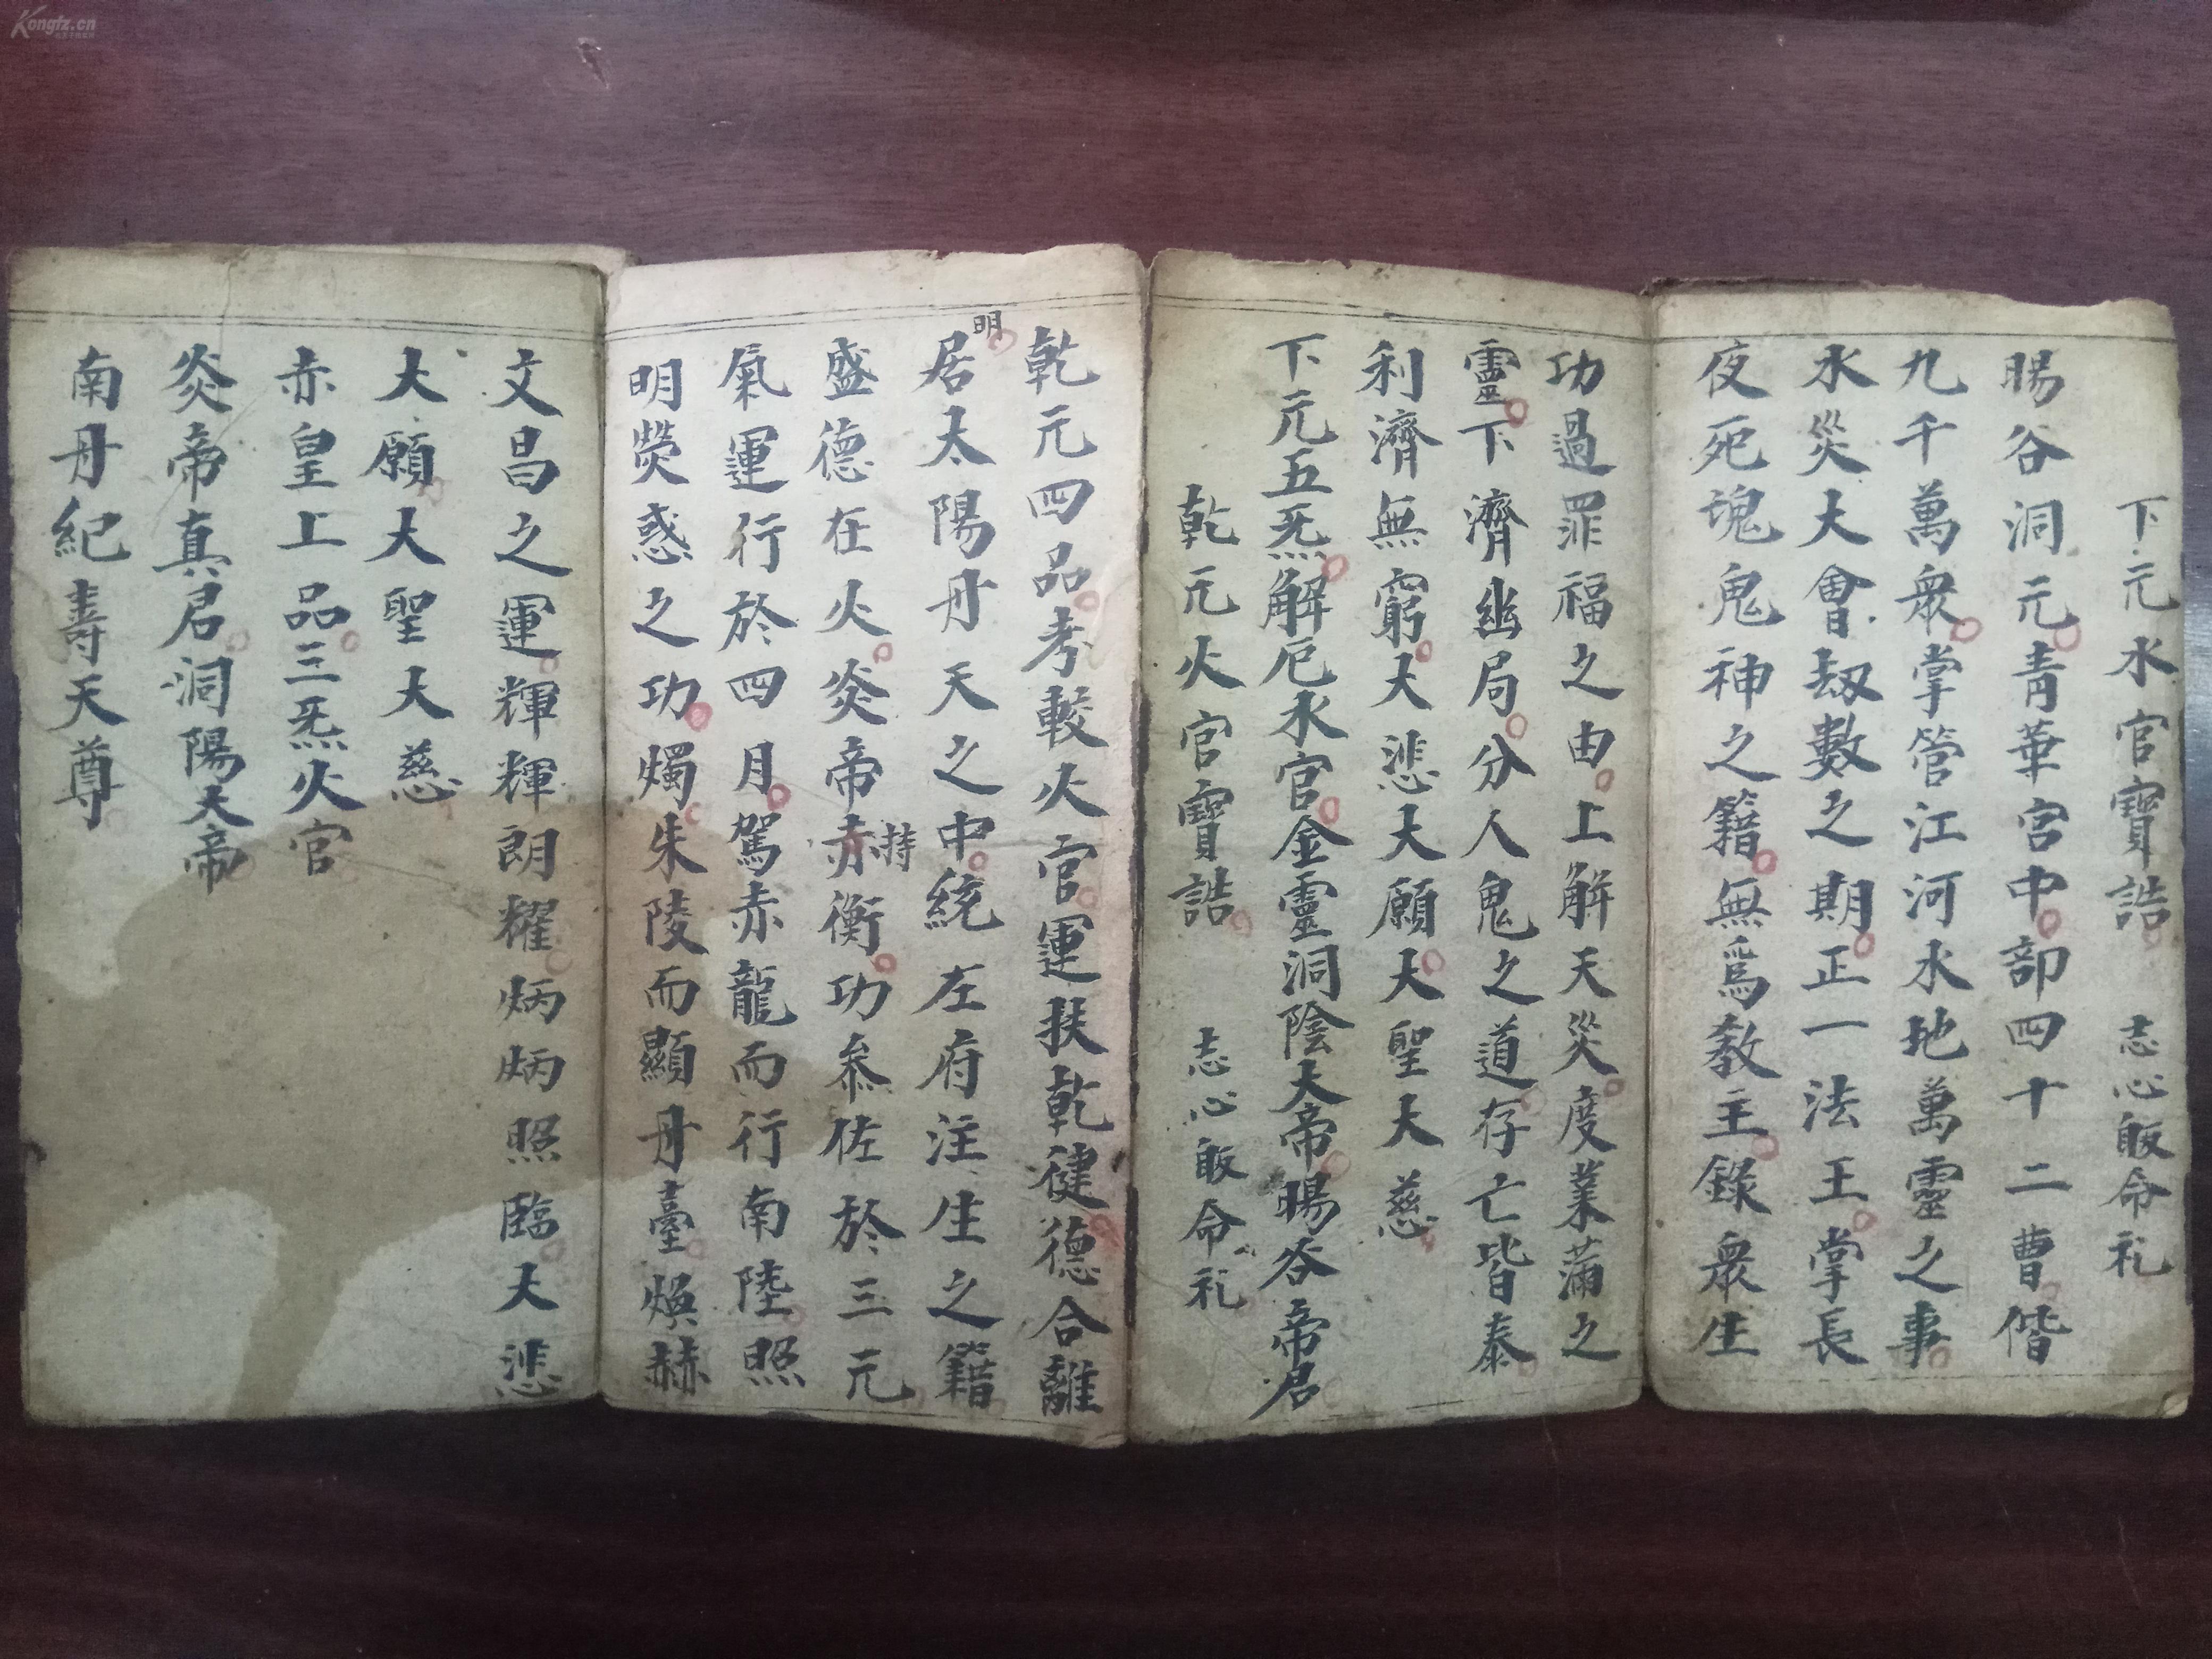 下元水官寳誥 志心皈命礼
暘谷洞元青華宮中部四十二曹偕
九千萬衆掌管江河水地萬靈之事
水災大會劫數之期正一法王掌長
夜死魂鬼神之籍無為教主錄衆生
功過罪福之由上解天災度業滿之
靈下濟幽局分人鬼之道存亡皆泰
利濟無窮大悲大願大聖大慈
下元五炁解厄水官金靈洞陰大帝暘谷帝君
乾元火官寳誥 志心皈命礼
乾元四品考較火官運扶乾健德合離
明
居太陽丹天之中統左府注生之籍
持
盛德在火炎帝赤衡功叅佐於三元
氣運行於四月駕赤龍而行南陸照
明熒惑之功燭朱陵而顯丹臺煥赫
文昌之運輝輝朗耀炳炳照臨大悲
大願大聖大慈
赤皇上品三炁火官
炎帝真君洞陽大帝
南丹紀壽天尊
Kongfz.cn